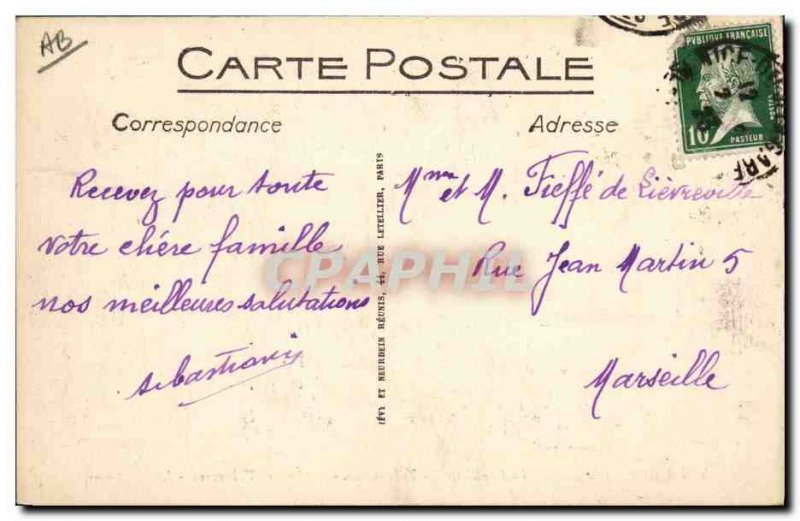 AB
CARTE POSTALE
Correspondance
Adresse
RÉPUBLIQUE FRANÇAISE
POSTES
10
PASTEUR
NICE
GARE
Recevez pour toute
votre chère famille
nos meilleures salutations
Sebastiani
LÉVY ET NEURDEIN RÉUNIS, 44, RUE LETELLIER, PARIS
Mme et M. Fieffé de Lièvreville
Rue Jean Martin 5
Marseille
CPAPHIL